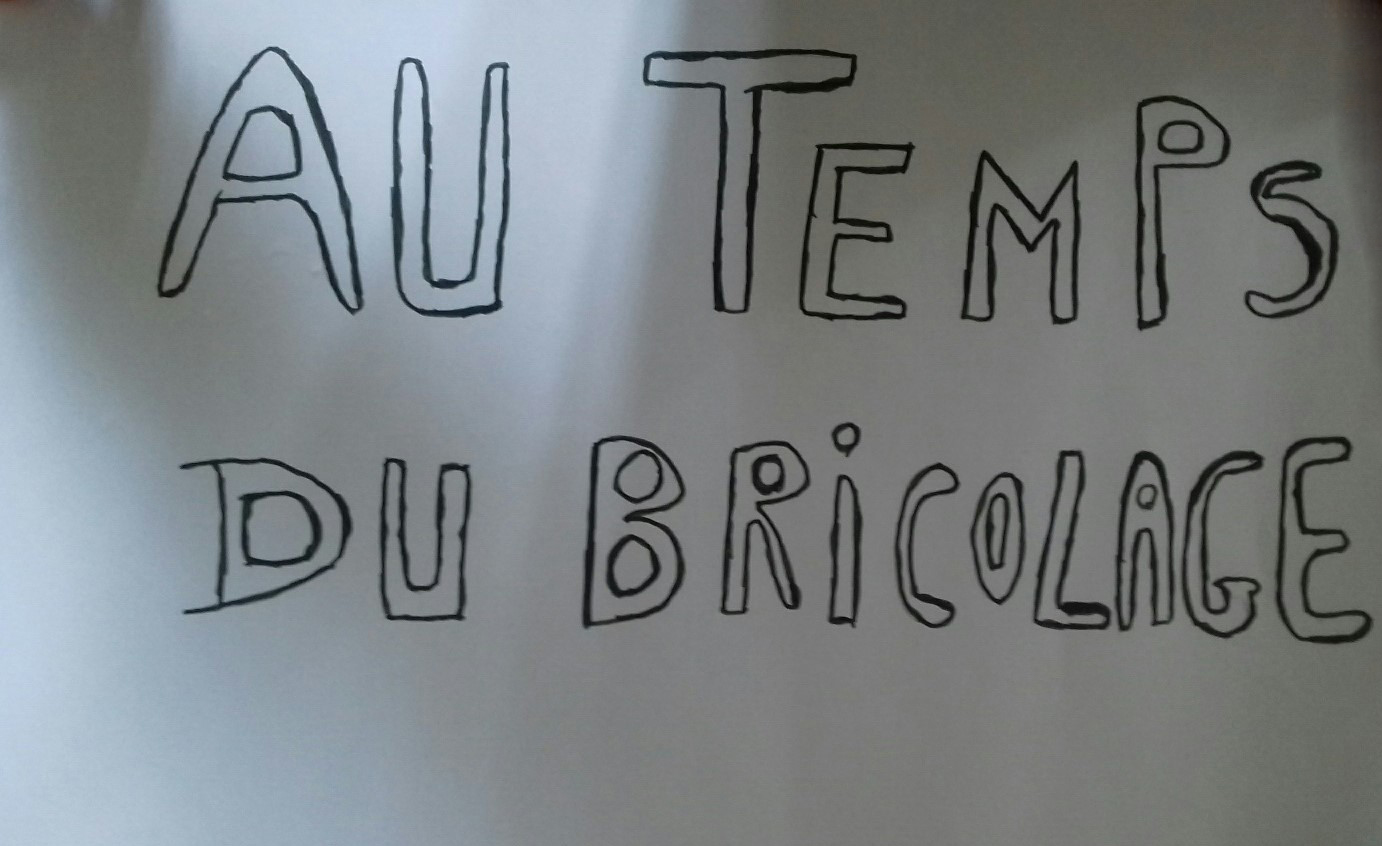 AU TEMPS
DU BRiCOLAGE